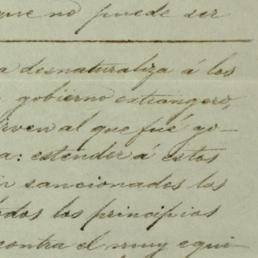 que no puede ser
a desnaturaliza á los
gobierno extrangero,
irven al que fué go-
a: estender á estos
in sancionados los
odos los principios
contra el muy equi-